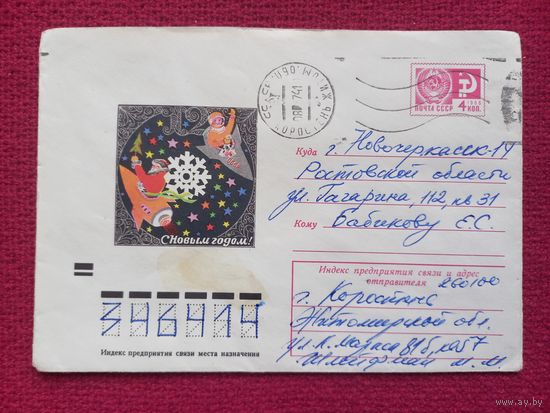 ПОЧТА СССР 1966
4 коп.
С Новым годом!
Куда г. Новочеркасск-14
Ростовской области
ул. Гагарина, 112, кв 31
Кому Бабикову Е.С.
Индекс предприятия связи и адрес
отправителя 260100
г. Коростень
Житомирской обл.
ул. К. Маркса 81б, кв 57
346414
Индекс предприятия связи места назначения
www.ay.by